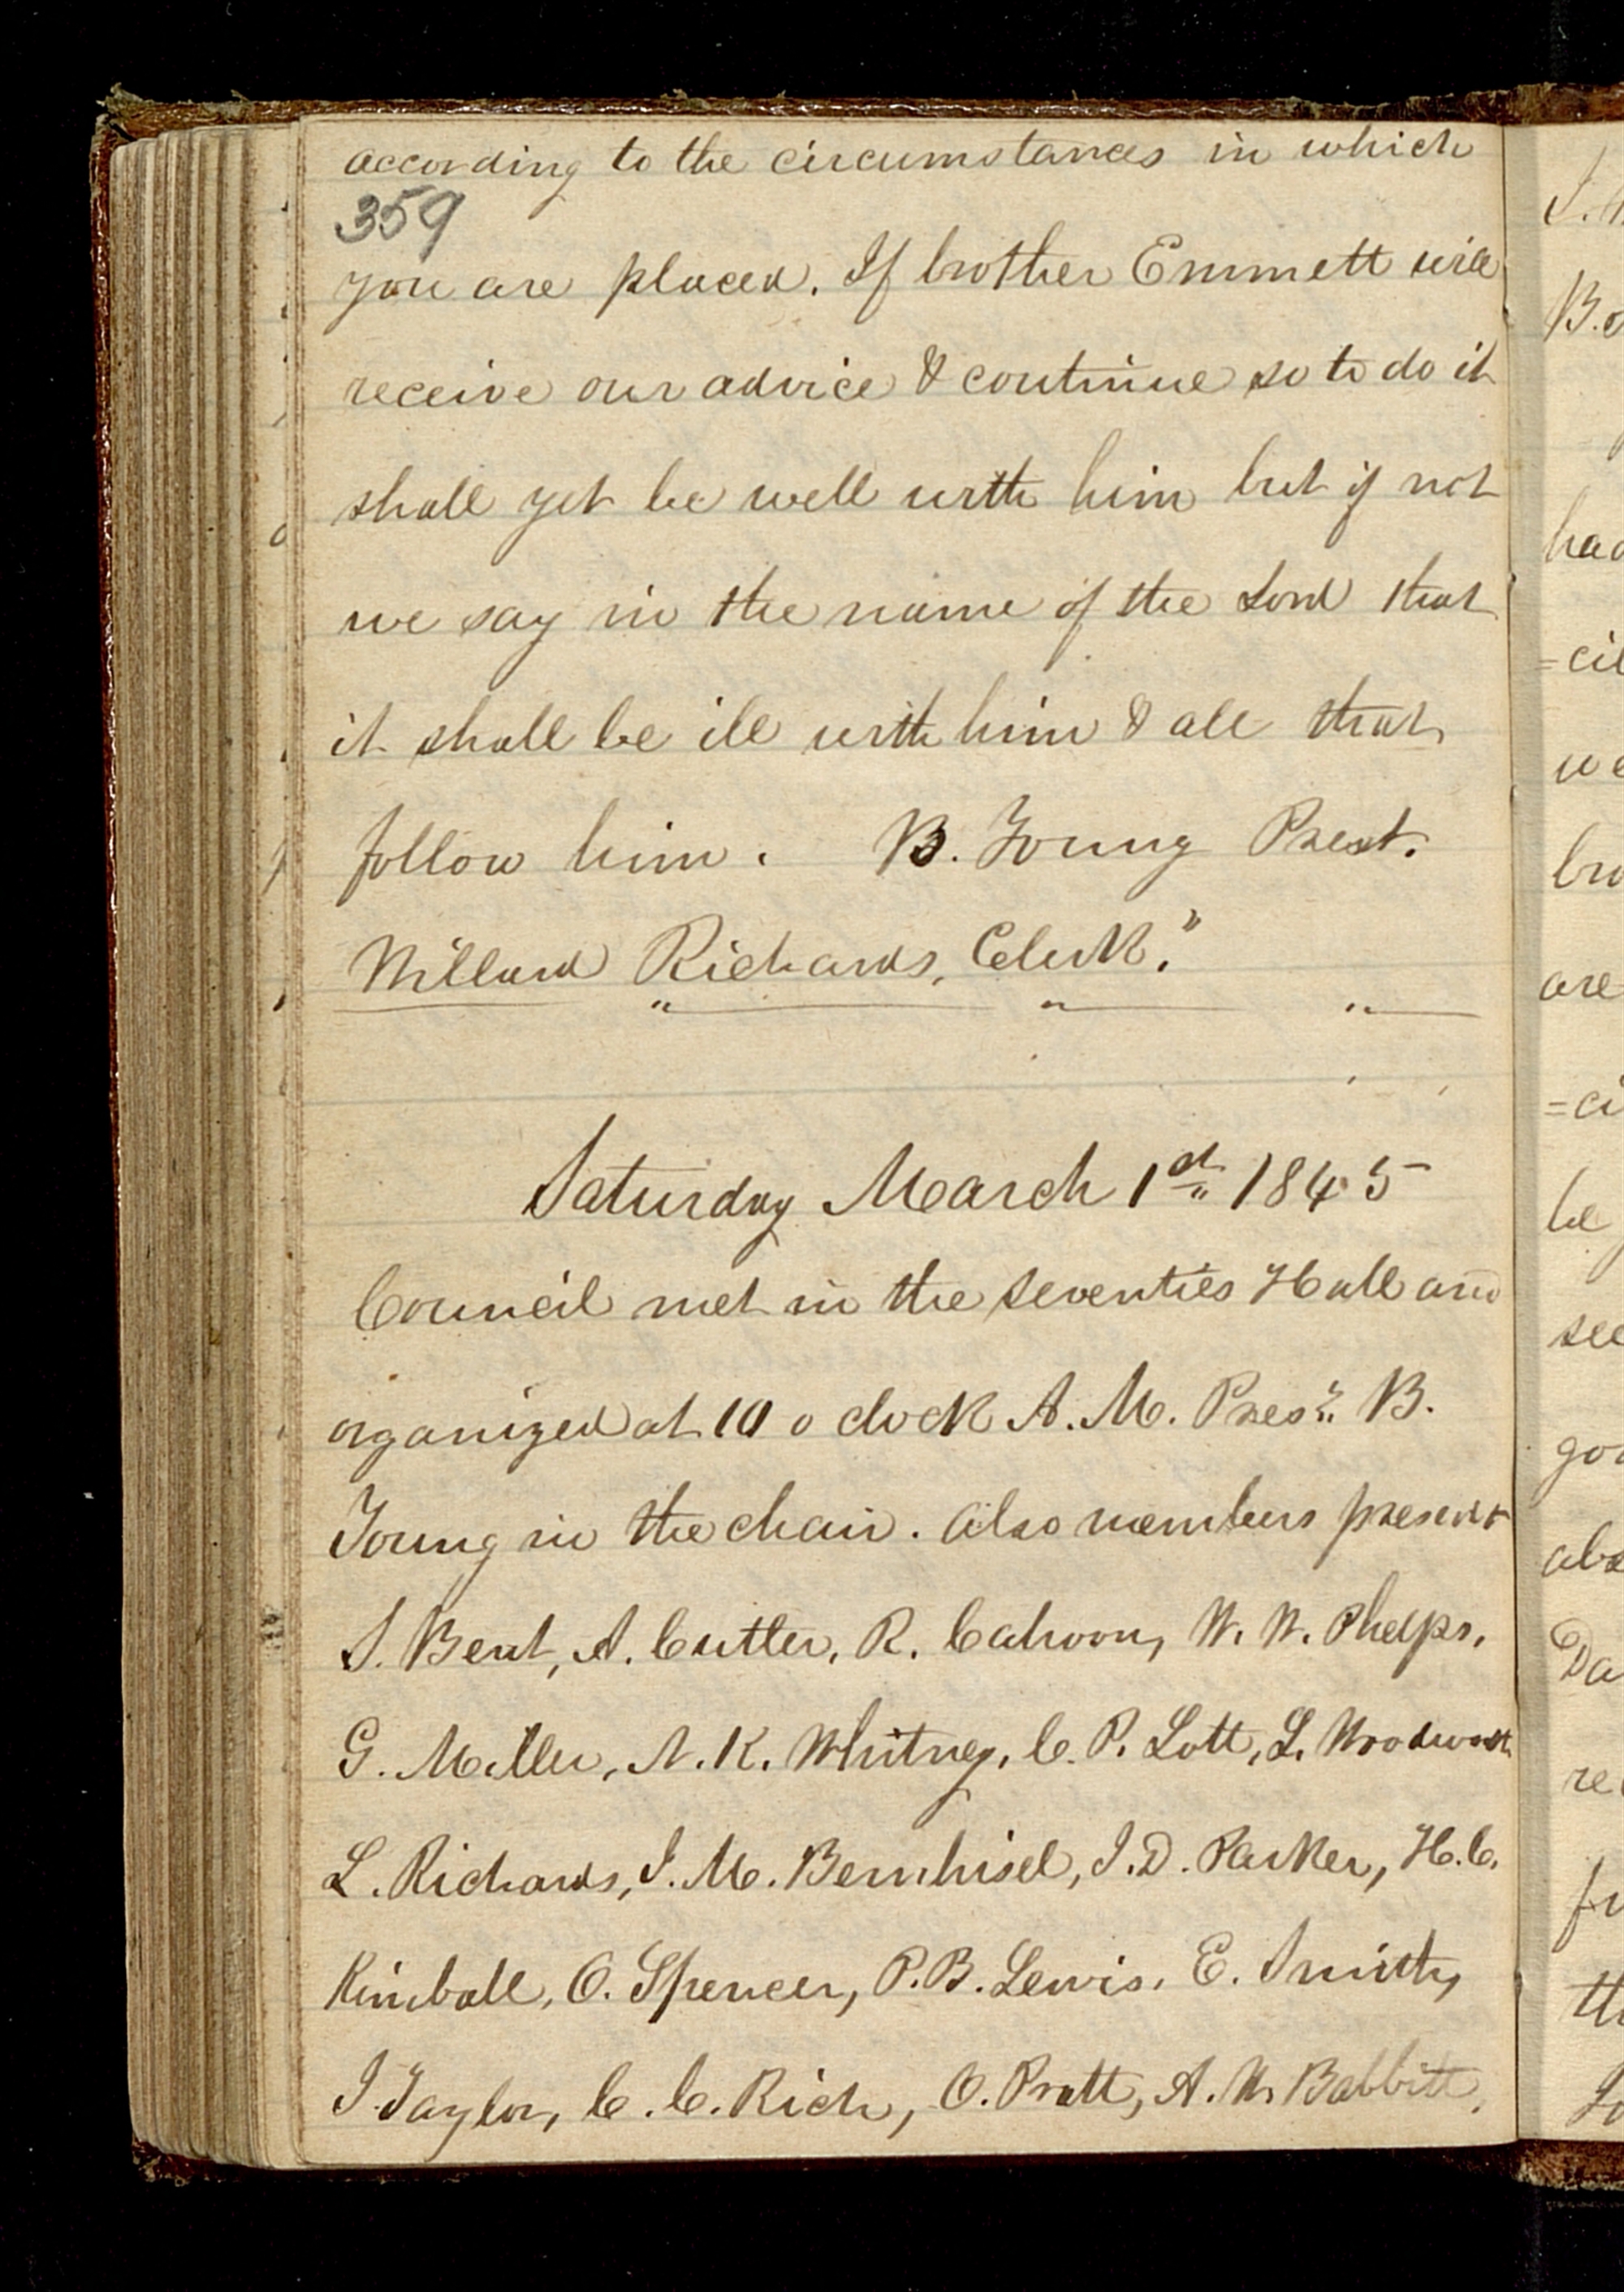 according to the circumstances in which
359
you are placed. If brother Emmett will
receive our advice & continue so to do it
shall yet be well with him but if not
we say in the name of the Lord that
it shall be ill with him & all that
follow him. B. Young Prest.
Willard Richards, Clerk."
Saturday March 1st 1845
Council met in the seventies Hall and
organized at 10 o clock A. M. Prest B.
Young in the chair. Also members present
S. Bent, A. Cutler, R. Cahoon, W. W. Phelps,
G. Miller, N. K. Whitney, C. P. Lott, L. Woodworth
L. Richards, J. M. Bernhisel, J. D. Parker, H. C.
Kimball, O. Spencer, P. B. Lewis, E. Smith,
J. Taylor, C. C. Rich, O. Pratt, A. W. Babbitt,
had
=cil
we
are
=ci
be
see